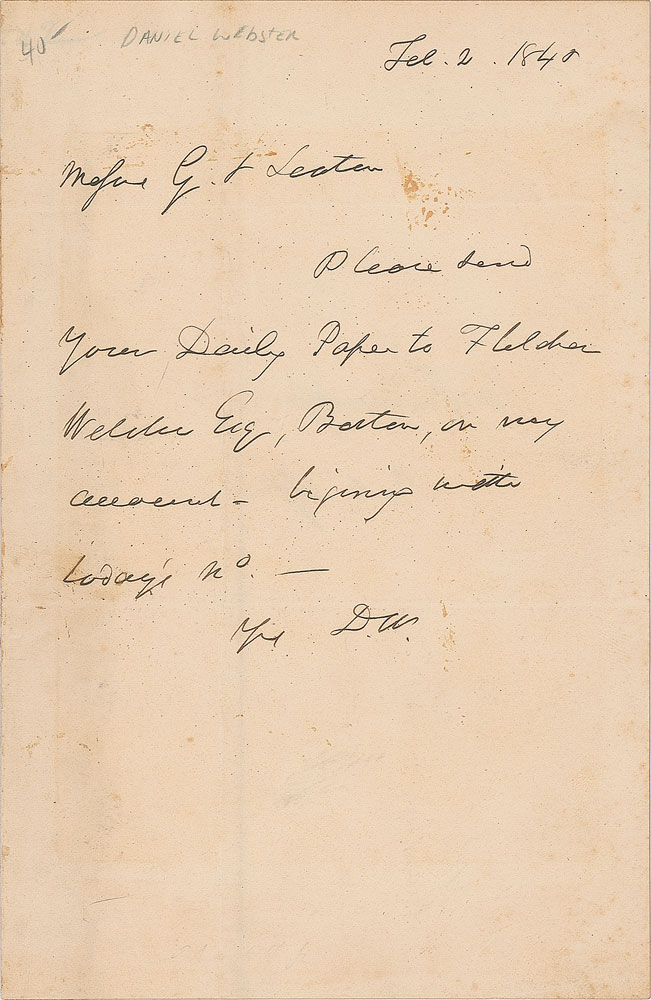 40
DANIEL WEBSTER
Feb. 2. 1840
Messrs G. & Seaton
Please send
Your Daily Paper to Fletcher
Webster Esq, Boston, on my
account - begining with
today's no. —
Yrs D.W.